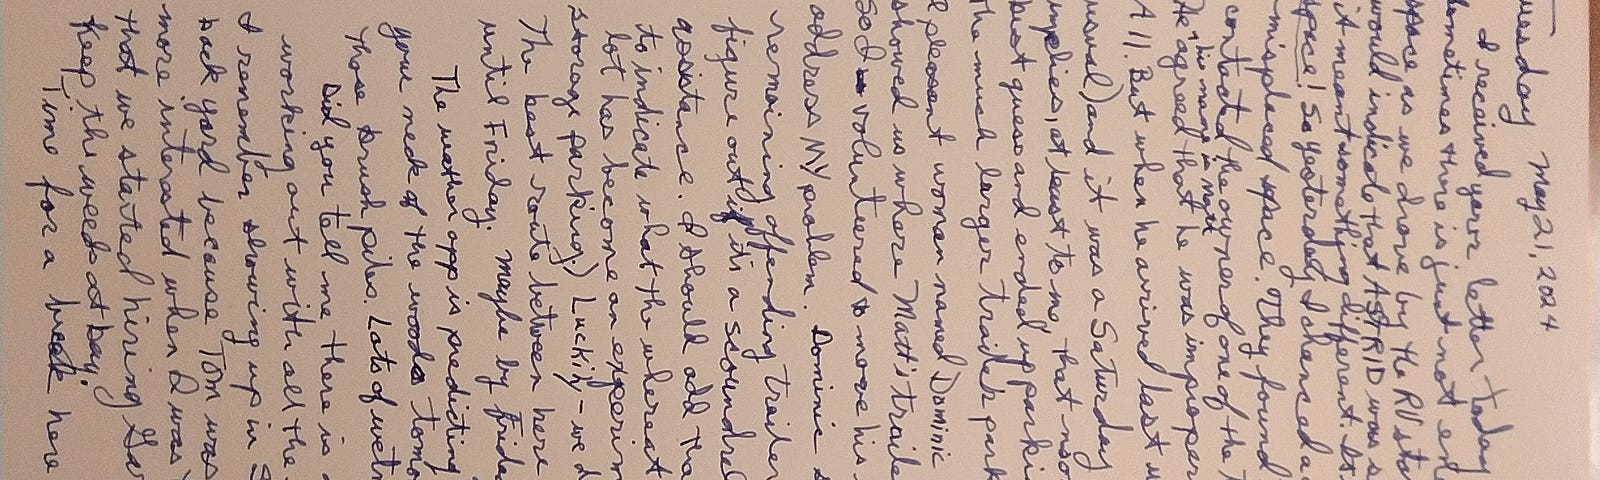 Tuesday May 21, 2024
I received your letter today
sometimes there is just not en
space as we drove by the RV sto
would indicate that ASTRID was s
it meant something different. It
space! So yesterday I chanced a
misplaced space. They found
contacted the owner of one of the T
He agreed that he was improper
his name is Matt
A 11. But when he arrived last w
usual) and it was a Saturday
implies, at least to me, that not
best guess and ended up parki
the much larger trailer park
A pleasant woman named Dominic
showed us where Matt's traile
Sed volunteered to move his
address MY problem. Dominic s
remaining offending trailer
figure out if it's a scoundrel
assistance. I should add tha
to indicate what the whereat
lot has become an experim
storage parking.) Luckily - we d
The best route between here
until Friday. Maybe by Frida
The weather app is predicting
your neck of the woods tomo
those brush piles. Lots of wet
Did you tell me there is a
working out with all the
I remember showing up in S
back yard because Tom was
more interested when I was
that we started hiring Gar
keep the weeds at bay.
Time for a break here